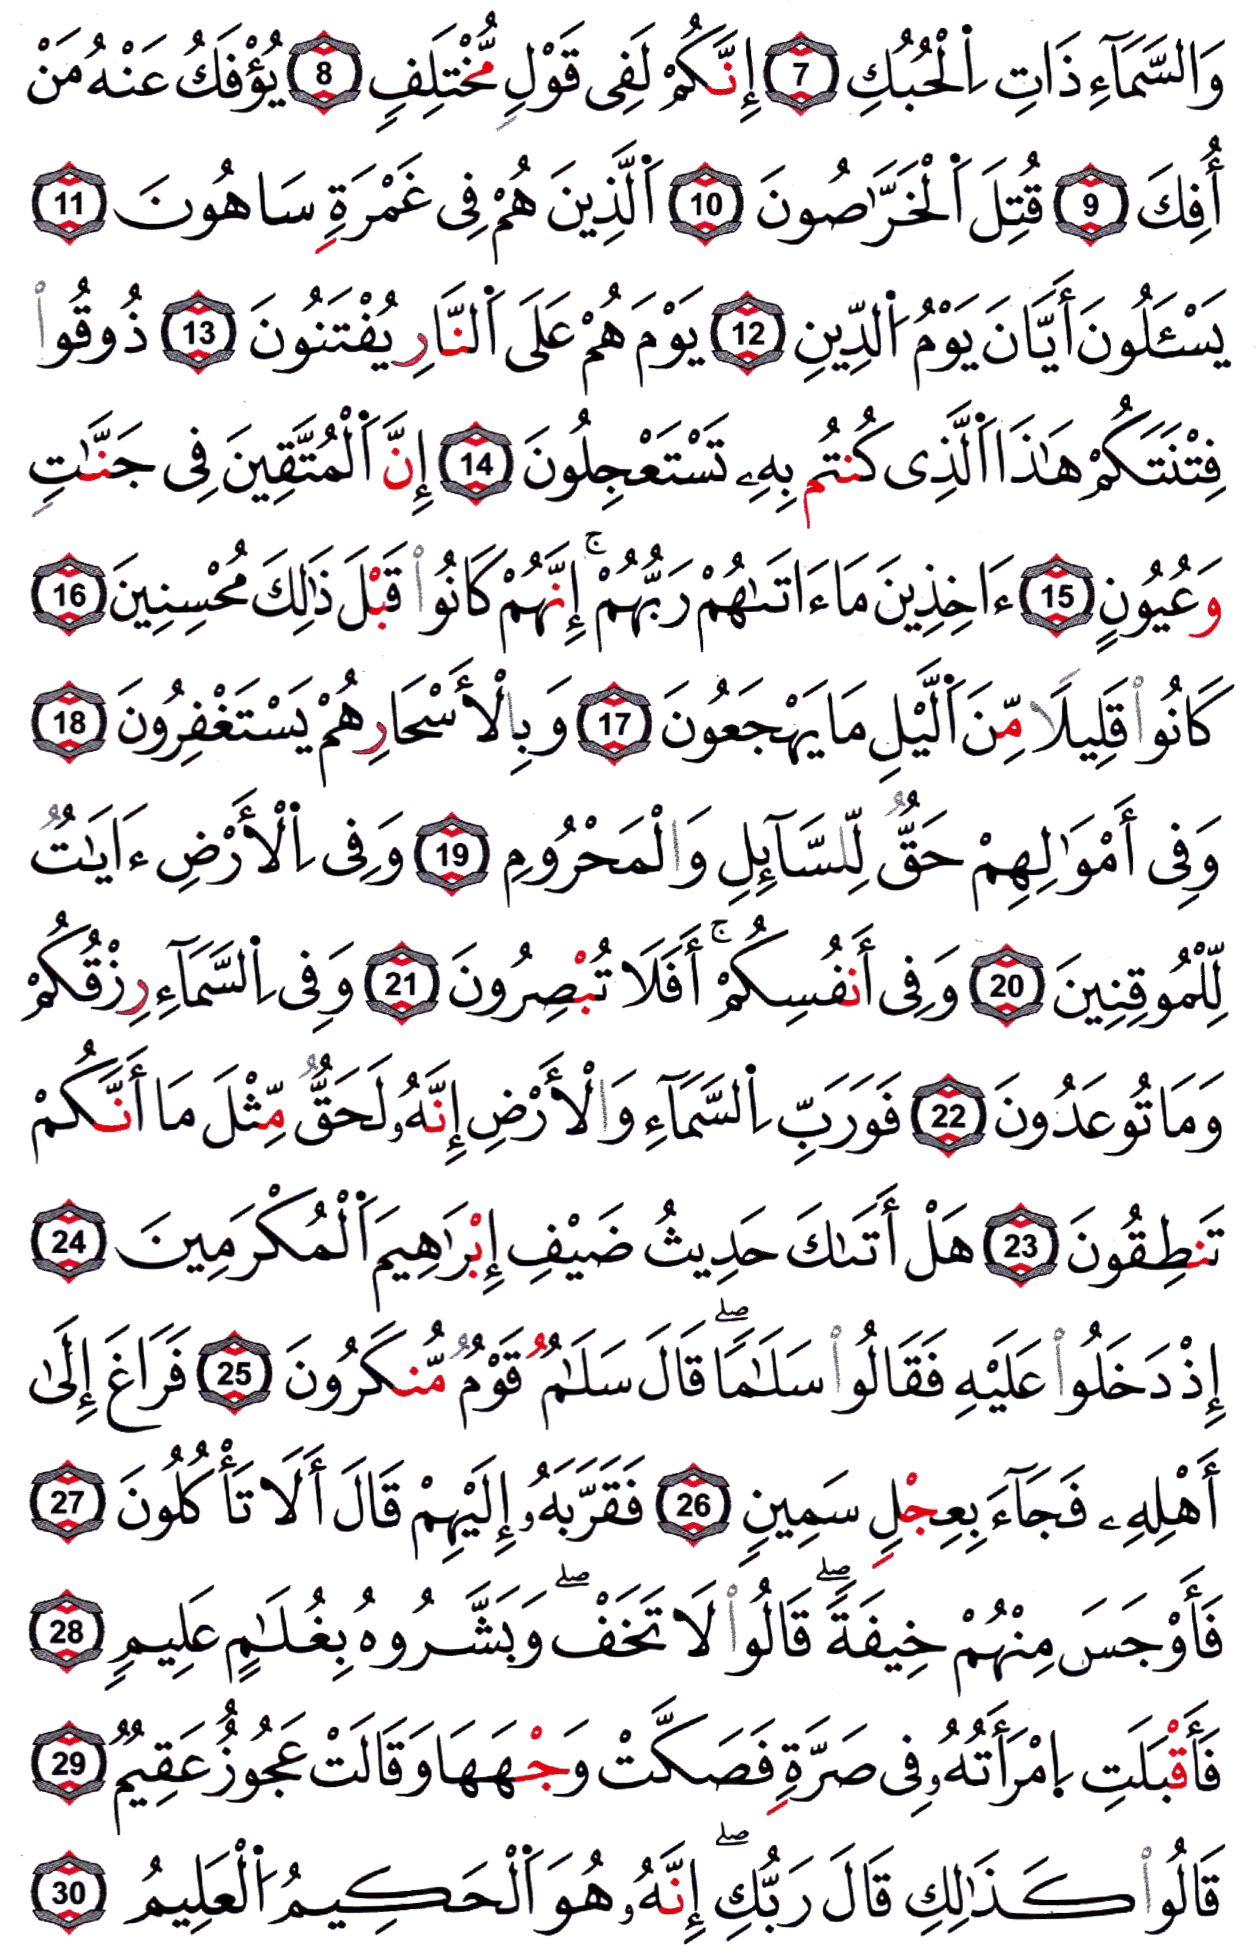 وَالسَّمَآءِ ذَاتِ اِ۬لْحُبُكِ 7 إِنَّكُمْ لَفِى قَوْلٍ مُّخْتَلِفٍ 8 يُؤْفَكُ عَنْهُ مَنْ
أُفِكَ 9 قُتِلَ اَ۬لْخَرَّٰصُونَ 10 اَ۬لَّذِينَ هُمْ فِى غَمْرَةٍ سَاهُونَ 11
يَسْـَٔلُونَ أَيَّانَ يَوْمُ اُ۬لدِّينِ 12 يَوْمَ هُمْ عَلَى اَ۬لنَّارِ يُفْتَنُونَ 13 ذُوقُواْ
فِتْنَتَكُمْ هَٰذَا اَ۬لَّذِى كُنتُم بِهِۦ تَسْتَعْجِلُونَ 14 إِنَّ اَ۬لْمُتَّقِينَ فِى جَنَّٰتٍ
وَعُيُونٍ 15 ءَاخِذِينَ مَا ءَاتَىٰهُمْ رَبُّهُمْ ۚ إِنَّهُمْ كَانُواْ قَبْلَ ذَٰلِكَ مُحْسِنِينَ 16
كَانُواْ قَلِيلًا مِّنَ اَ۬لَّيْلِ مَا يَهْجَعُونَ 17 وَبِالْأَسْحَارِ هُمْ يَسْتَغْفِرُونَ 18
وَفِى أَمْوَٰلِهِمْ حَقٌّ لِّلسَّآئِلِ وَالْمَحْرُومِ 19 وَفِى اِ۬لْأَرْضِ ءَايَٰتٌ
لِّلْمُوقِنِينَ 20 وَفِى أَنفُسِكُمْ ۚ أَفَلَا تُبْصِرُونَ 21 وَفِى اِ۬لسَّمَآءِ رِزْقُكُمْ
وَمَا تُوعَدُونَ 22 فَوَرَبِّ اِ۬لسَّمَآءِ وَالْأَرْضِ إِنَّهُۥ لَحَقٌّ مِّثْلَ مَا أَنَّكُمْ
تَنطِقُونَ 23 هَلْ أَتَىٰكَ حَدِيثُ ضَيْفِ إِبْرَٰهِيمَ اَ۬لْمُكْرَمِينَ 24
إِذْ دَخَلُواْ عَلَيْهِ فَقَالُواْ سَلَٰمًا ۖ قَالَ سَلَٰمٌ قَوْمٌ مُّنكَرُونَ 25 فَرَاغَ إِلَىٰ
أَهْلِهِۦ فَجَآءَ بِعِجْلٍ سَمِينٍ 26 فَقَرَّبَهُۥ إِلَيْهِمْ قَالَ أَلَا تَأْكُلُونَ 27
فَأَوْجَسَ مِنْهُمْ خِيفَةً ۖ قَالُواْ لَا تَخَفْ ۖ وَبَشَّرُوهُ بِغُلَٰمٍ عَلِيمٍ 28
فَأَقْبَلَتِ اِ۪مْرَأَتُهُۥ فِى صَرَّةٍ فَصَكَّتْ وَجْهَهَا وَقَالَتْ عَجُوزٌ عَقِيمٌ 29
قَالُواْ كَذَٰلِكِ قَالَ رَبُّكِ ۖ إِنَّهُۥ هُوَ اَ۬لْحَكِيمُ اُ۬لْعَلِيمُ 30